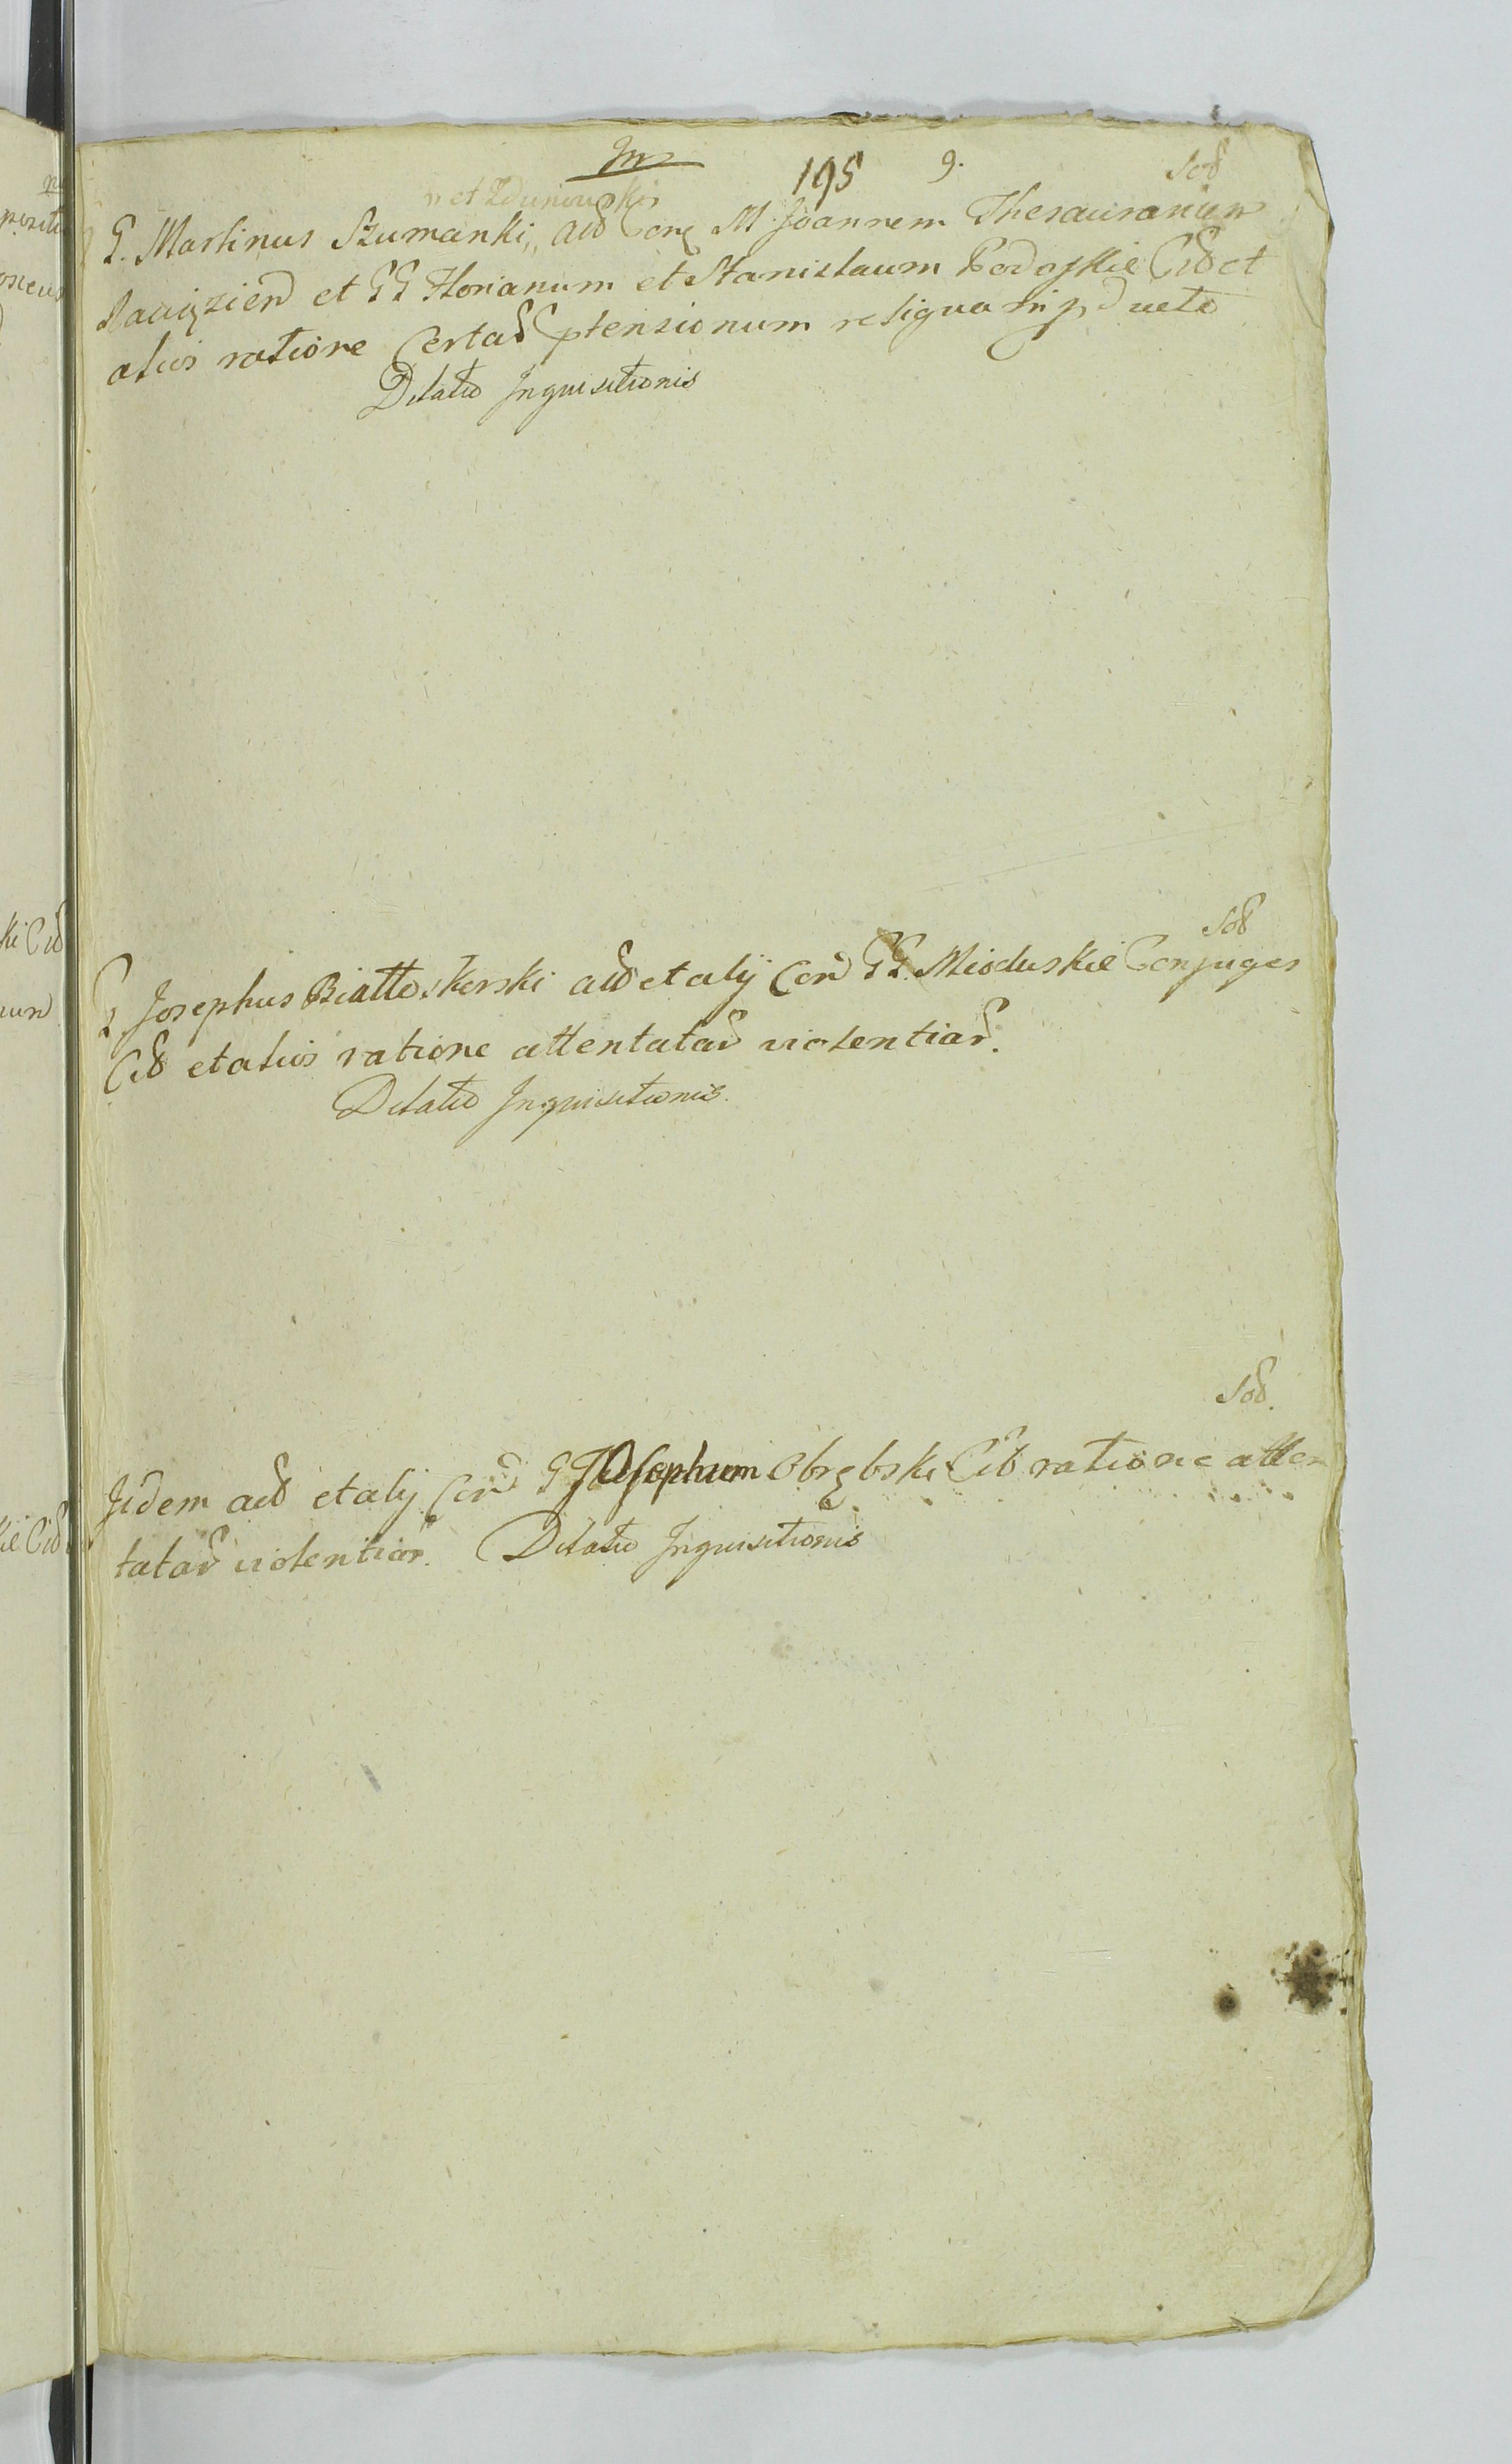 Jnr 195 9. Sod
n et Zduniowski
G. Martinus Szumanki, acto Cone M. Joannem Thesaurarium
Raciązien et GG Florianum et Stanislaum Podoskie Cito et
alios ratione Certar ptensionum reliqua in
Dilatio Jnquisitionis
Sod
G Josephus Biattoskorski acto et alij Con GG. Mioduskie Conjuges
Cito et alios ratione attentatar violentiar.
Dilatio Jnquisitionis.
Sod.
Jidem acto et alij Con G Josephum Obrębski Cito ratione atten
tatar violentiar. Dilatio Jnquisitionis